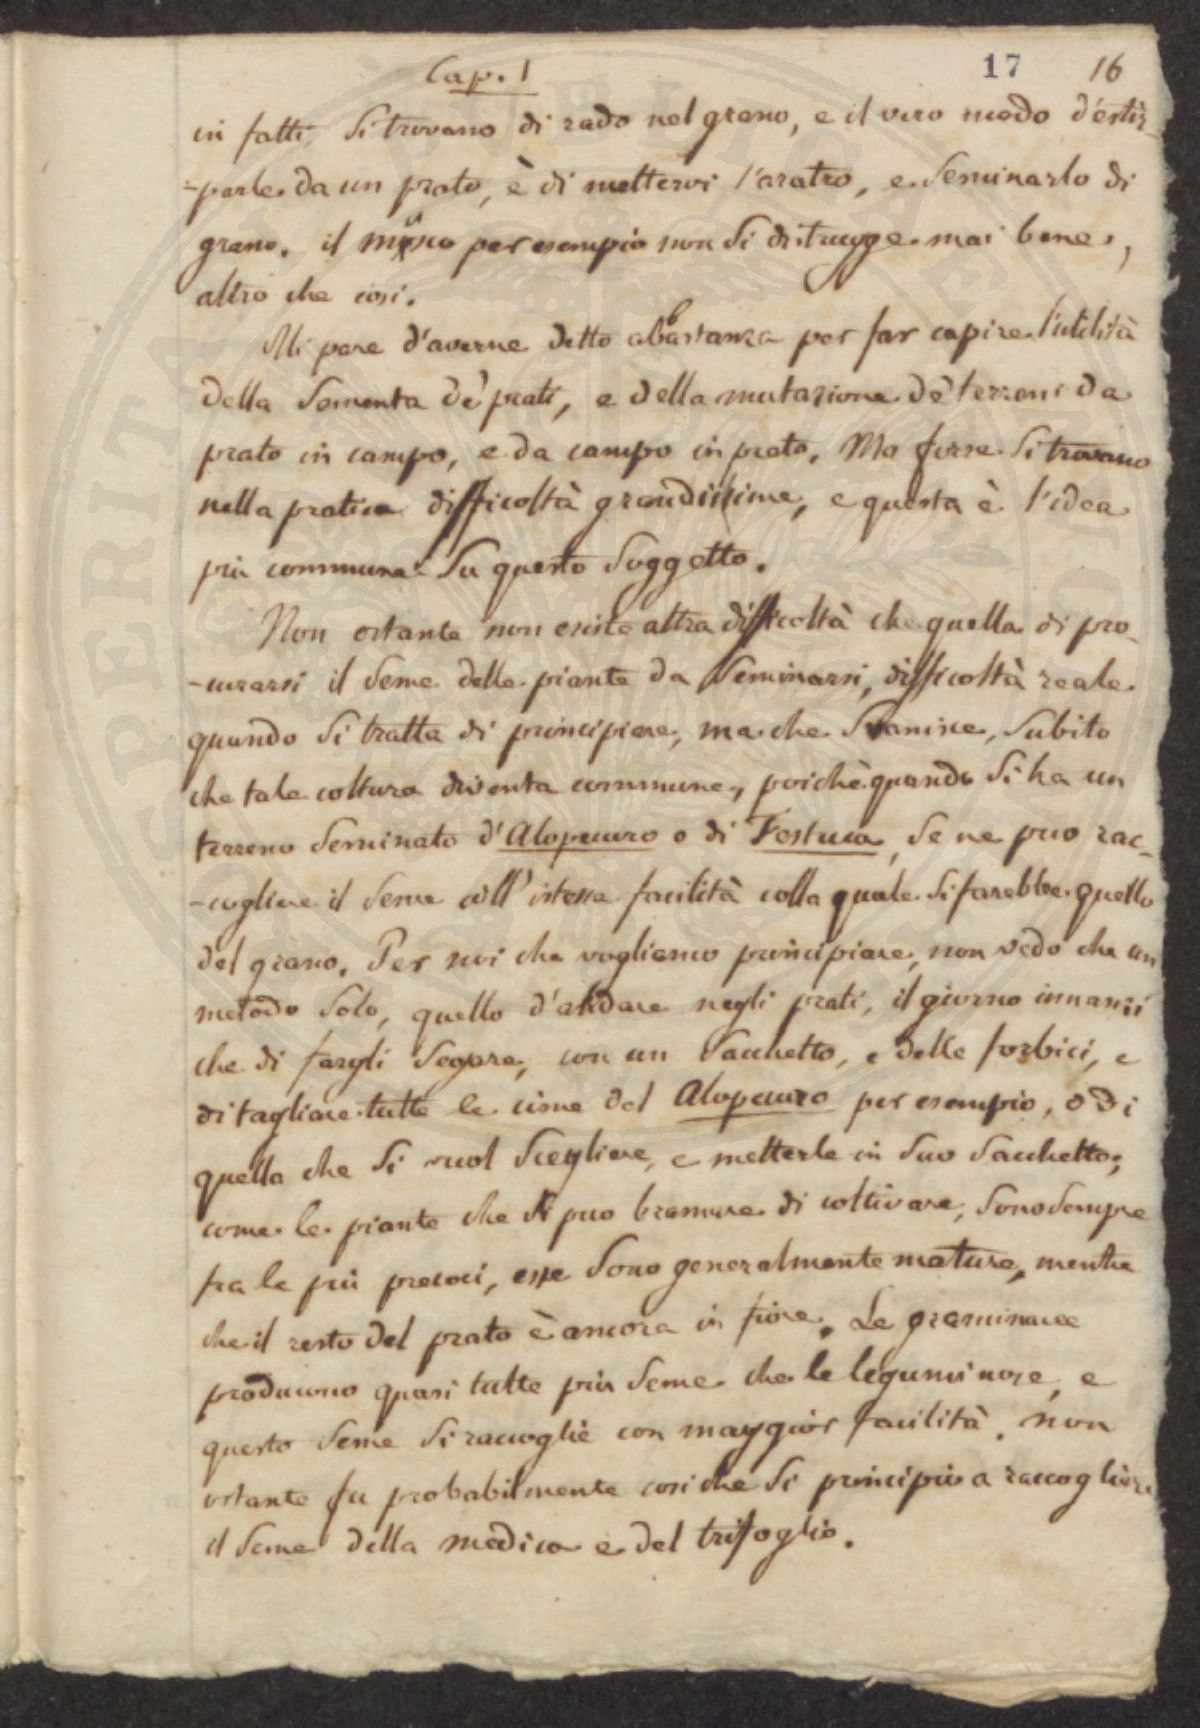 Cap. I
17 16
in fatti, si trovano di rado nel grano, e il vero modo d'estir-
-parle da un prato, è di mettervi l'aratro, e seminarlo di
grano. il musco per esempio non si distrugge mai bene,
altro che così.
Mi pare d'averne detto abbastanza per far capire l'utilità
della sementa de' prati, e della mutazione de' terreni da
prato in campo, e da campo in prato. Ma forse si trovano
nella pratica difficoltà grandissime, e questa è l'idea
più commune su questo soggetto.
Non ostante non esiste altra difficoltà che quella di pro-
-curarsi il seme delle piante da seminarsi, difficoltà reale
quando si tratta di principiare, ma che svanisce, subito
che tale coltura diventa commune, poichè quando si ha un
terreno seminato d'Alopecuro o di Festuca, se ne puo rac-
-cogliere il seme coll'istessa facilità colla quale si farebbe quello
del grano. Per noi che vogliamo principiare, non vedo che un
metodo solo, quello d'andare negli prati, il giorno innanzi
che di fargli segare, con un sacchetto, e delle forbici, e
di tagliare tutte le cime del Alopecuro per esempio, o di
quella che si vuol scegliere, e metterle in suo sacchetto;
come le piante che si puo bramare di coltivare, sono sempre
fra le più precoci, esse sono generalmente mature, mentre
che il resto del prato è ancora in fiore. Le graminacee
producono quasi tutte più seme che le leguminose, e
questo seme si raccoglie con maggior facilità. non
ostante fu probabilmente così che si principiò a raccogliere
il seme della medica e del trifoglio.